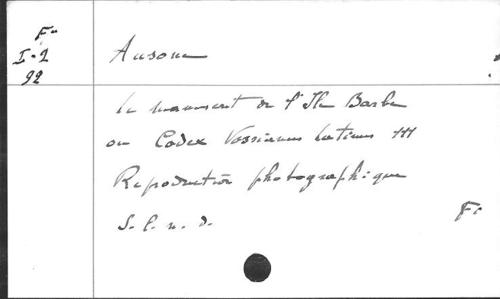 Fº
I-2
92
Ausone
Le manuscrit de l'Ile Barbe
ou Codex Vossianus latinus 111
Reproduction photographique
S. l. n. d.
Fº